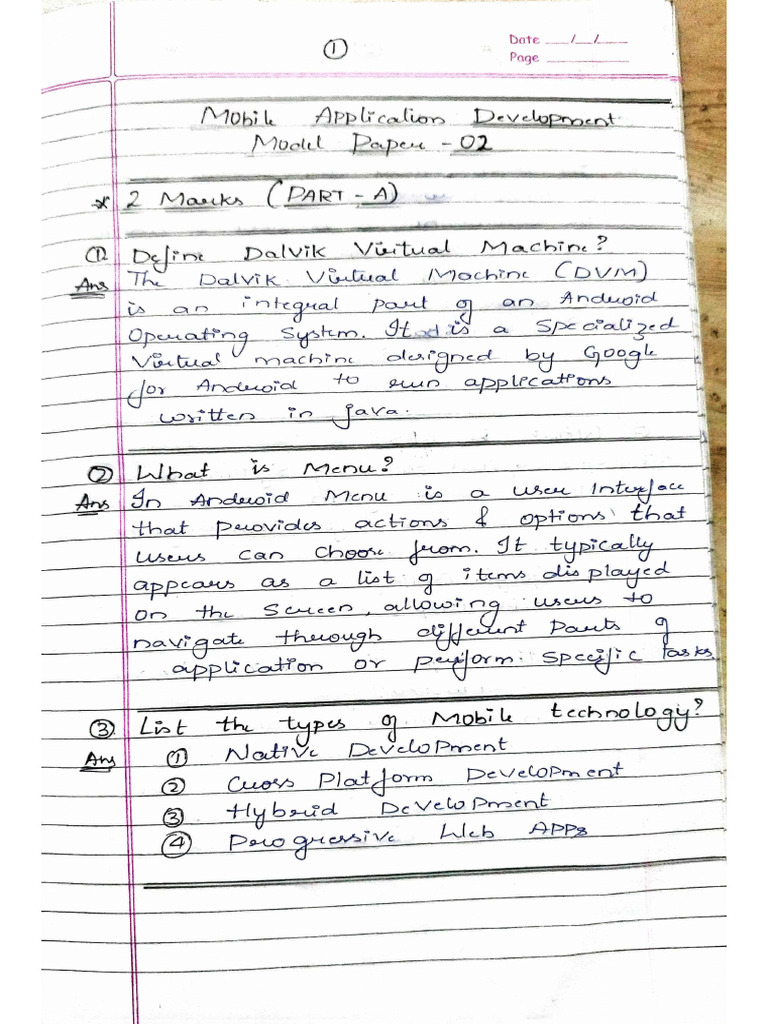 ①
Date __/__/__
Page ________
Mobile Application Development
Model Paper - 02
* 2 Marks (PART - A)
① Define Dalvik Virtual Machine?
Ans The Dalvik Virtual Machine (DVM)
is an integral part of an Android
Operating System. It is a Specialized
Virtual machine designed by Google
for Android to run applications
written in java.
② What is Menu?
Ans In Android Menu is a user Interface
that provides actions & options that
users can choose from. It typically
appears as a list of items displayed
on the Screen, allowing users to
navigate through different Parts of
application or perform specific tasks.
③ List the types of Mobile technology?
Ans ① Native Development
② Cross Platform Development
③ Hybrid Development
④ Progressive Web Apps